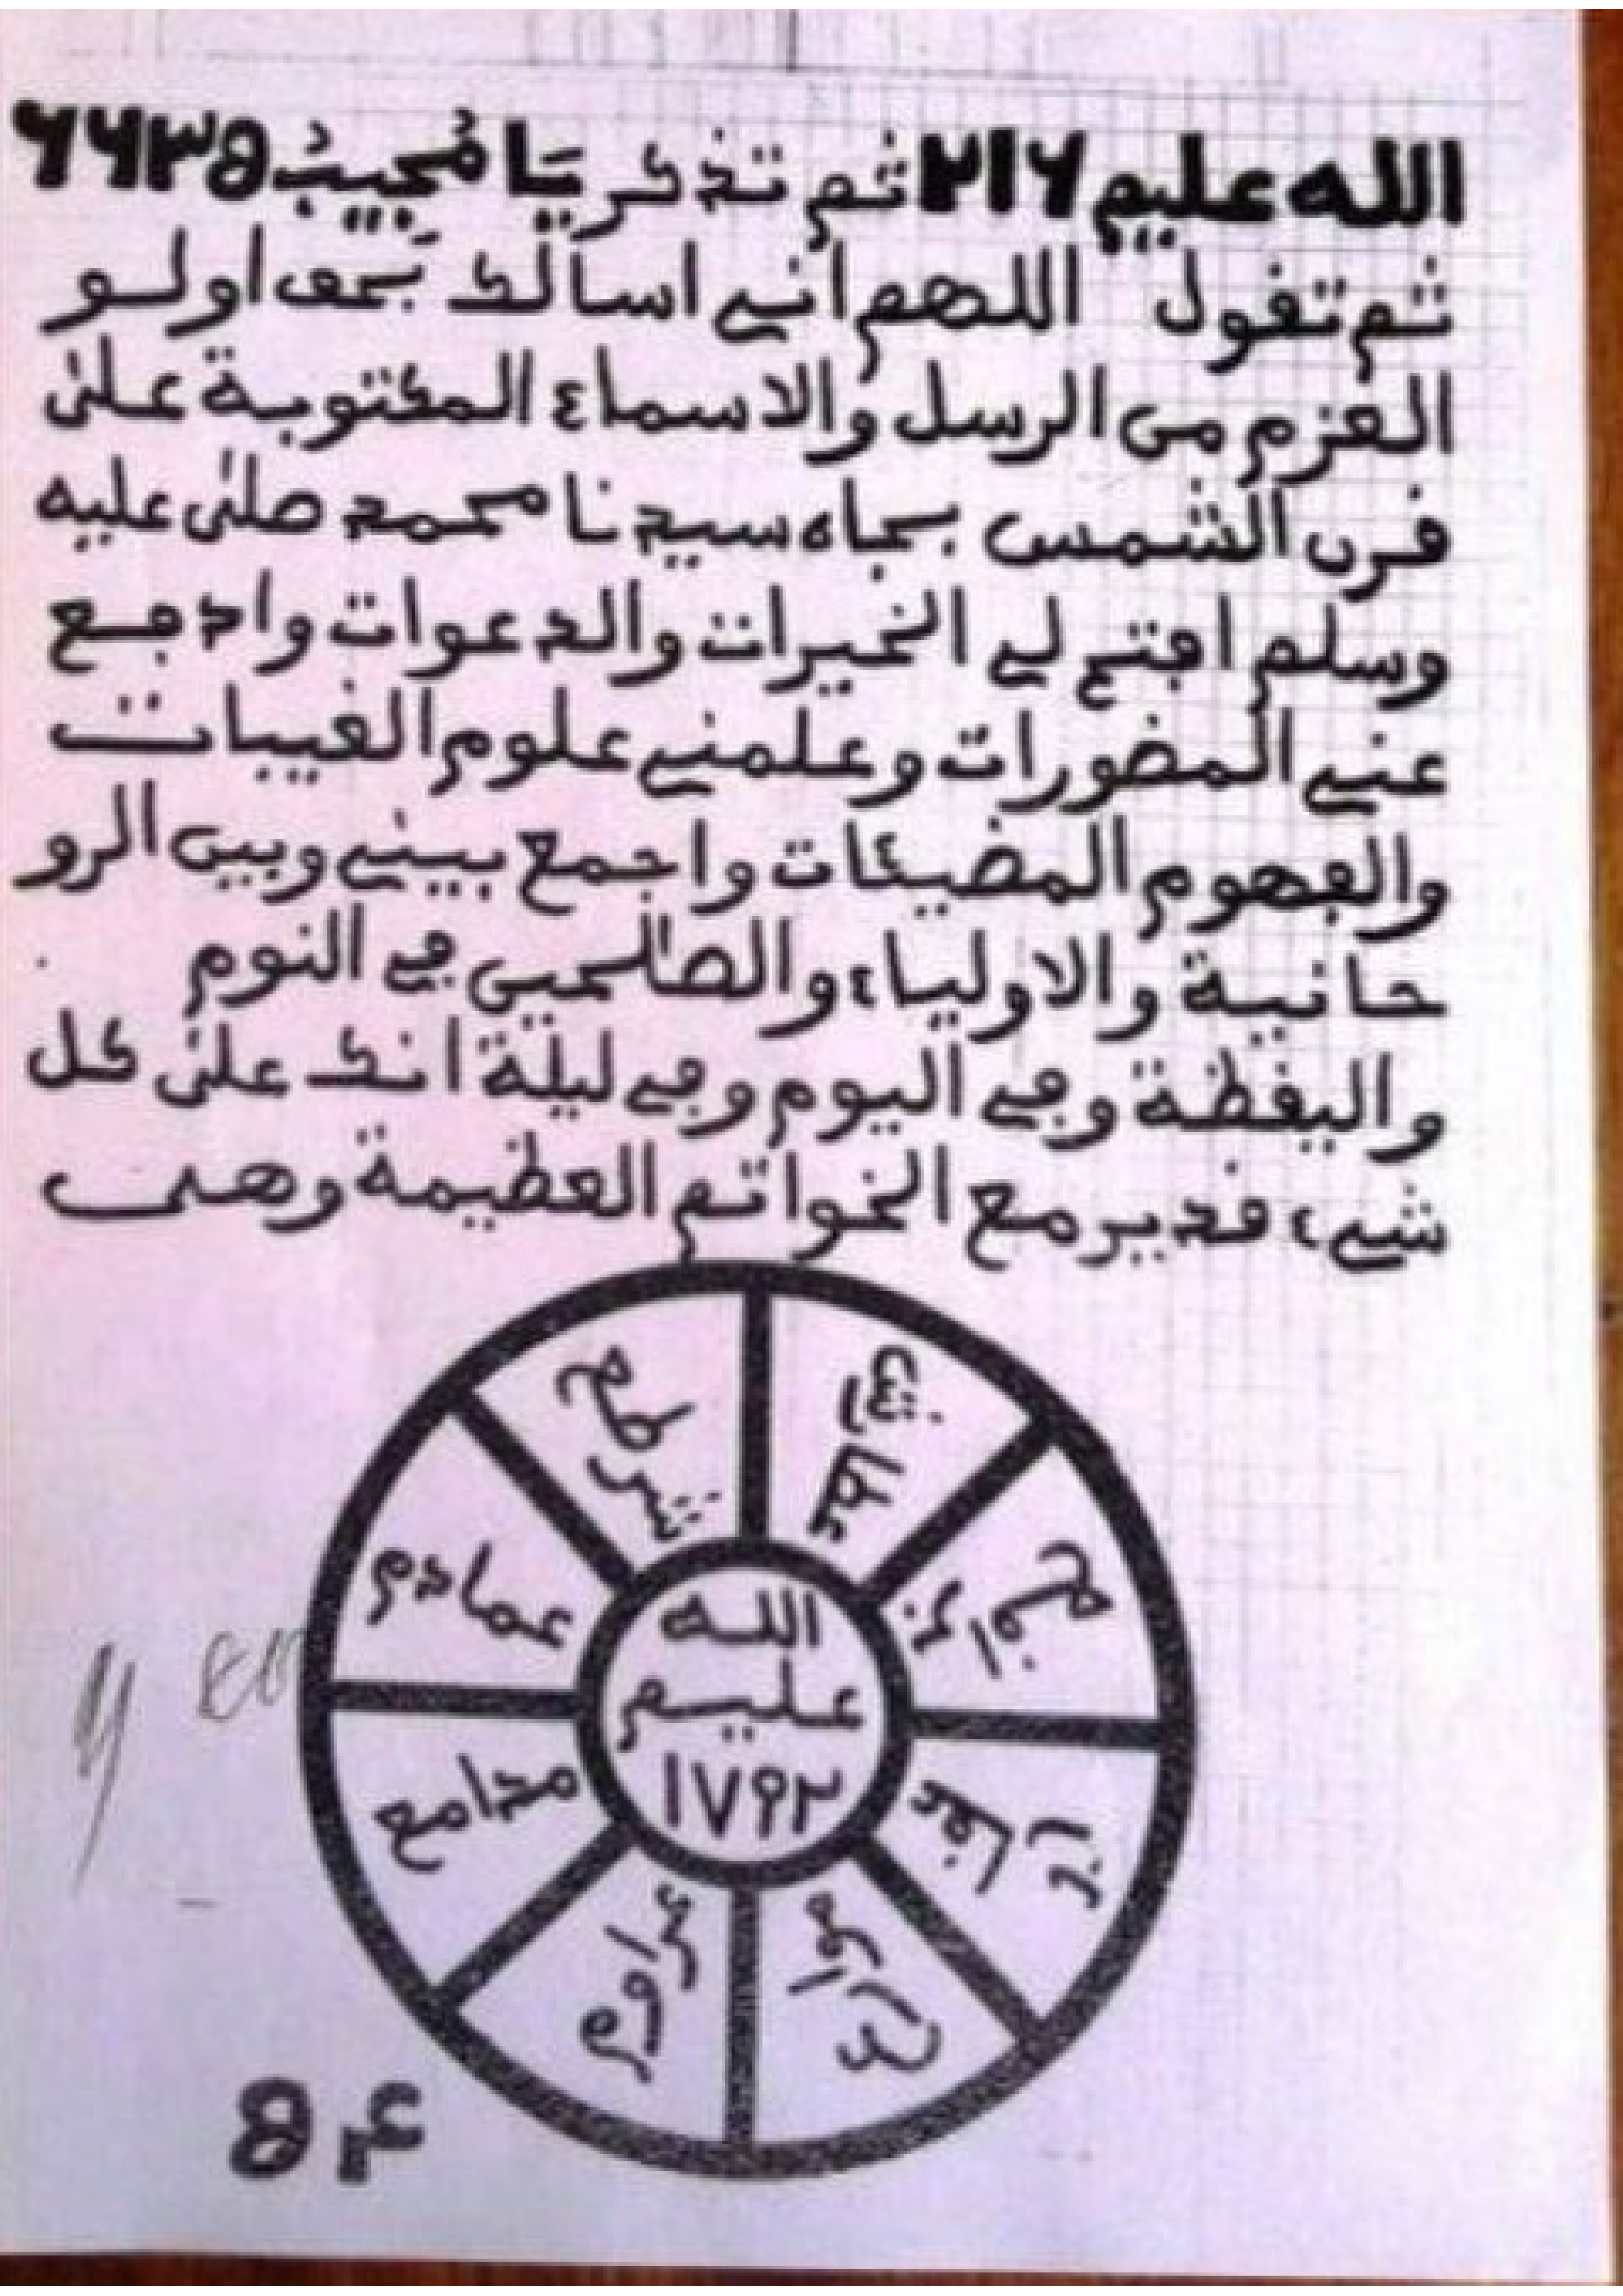 الله عليم ٢١٦ ثم تذكر يَا مُجِيبُ ٦٦٣٥
ثم تقول اللهم اني اسالك بحق اولو
العزم من الرسل والاسماء المكتوبة على
قرن الشمس بجاه سيدنا محمد صلى عليه
وسلم افتح لي الخيرات والدعوات وادفع
عني المضورات وعلمني علوم الغيبات
والفهوم المضيئات واجمع بيني وبين الرو
حانية والاولياء والصالحين في النوم
واليقظة وفي اليوم وفي ليلة انك على كل
شيء قدير مع الخواتم العظيمة وهي
شرطع
عمادم
مدامع
الله
عليم
١٧٩٢